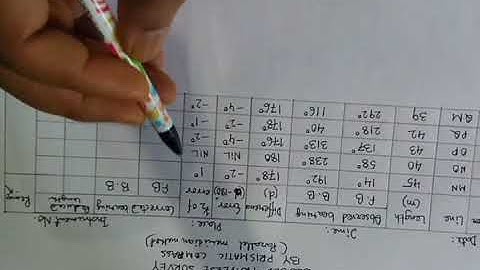 TRAVERSE SURVEY
BY PRISMATIC COMPASS
(Parallel meridian method)
Date: Time: Place: Instrument No:
Line Length (m) Observed bearing Difference (d) Error (d-180) ½ of error Corrected bearing
F.B B.B F.B B.B
MN 45 14° 192° 178° -2° 1°
NO 40 58° 238° 180 NIL NIL
OP 43 137° 313° 176° -4° -2°
PQ 42 218° 40° 178° -2° -1°
QM 39 292° 116° 176° -4° -2°